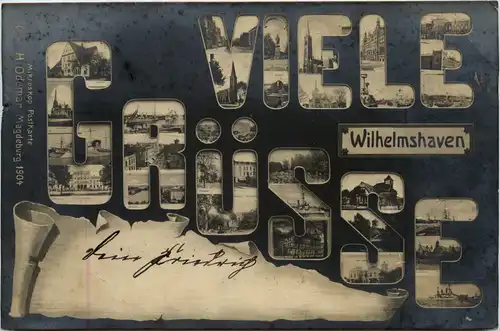 VIELE
GRÜSSE
Wilhelmshaven
Mikroskop Postkarte
H. Odemar Magdeburg 1904
dein Friedrich